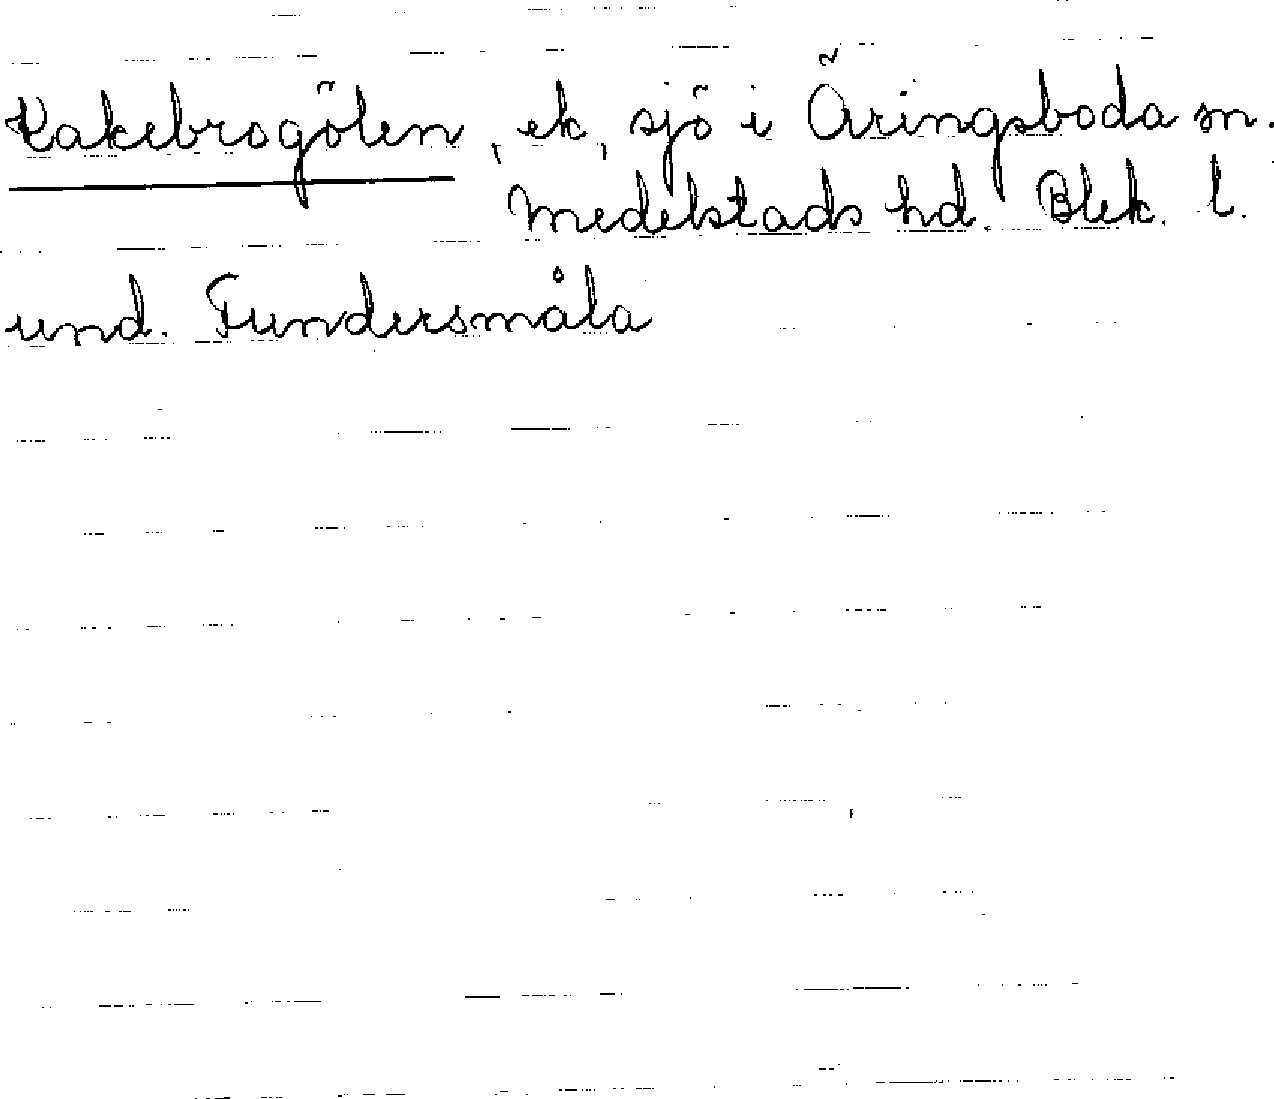 Kakebrogölen, ek, sjö i Öringsboda sn.
Medelstads hd. Blek. l.
und. Tundersmåla